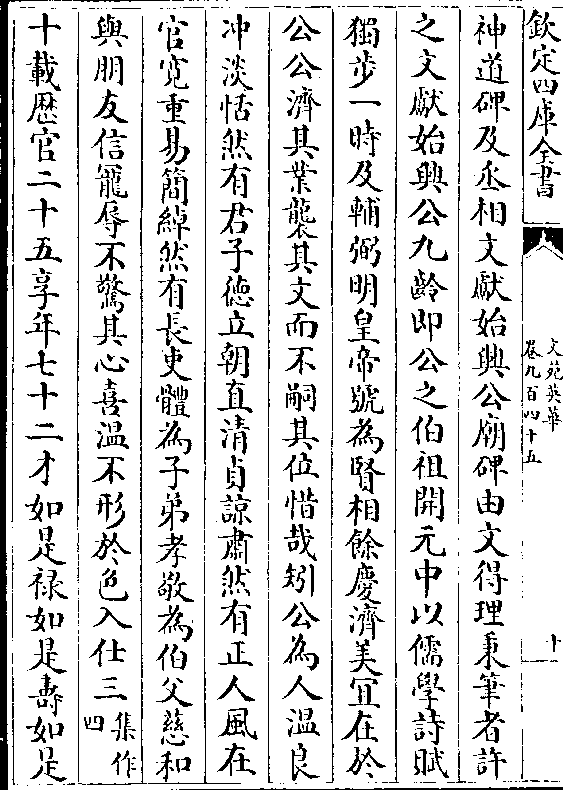 欽定四庫全書
文苑英華
卷九百四十五
十
神道碑及丞相文獻始興公廟碑由文得理秉筆者許
之文獻始興公九齡即公之伯祖開元中以儒學詩賦
獨步一時及輔弼明皇帝號為賢相餘慶濟美宜在於
公公濟其業襲其文而不嗣其位惜哉矧公為人溫良
冲淡恬然有君子德立朝直清貞諒肅然有正人風在
官寛重易簡綽然有長吏體為子弟孝敬為伯父慈和
與朋友信寵辱不驚其心喜溫不形於色入仕三集作四
十載歴官二十五享年七十二才如是禄如是壽如是